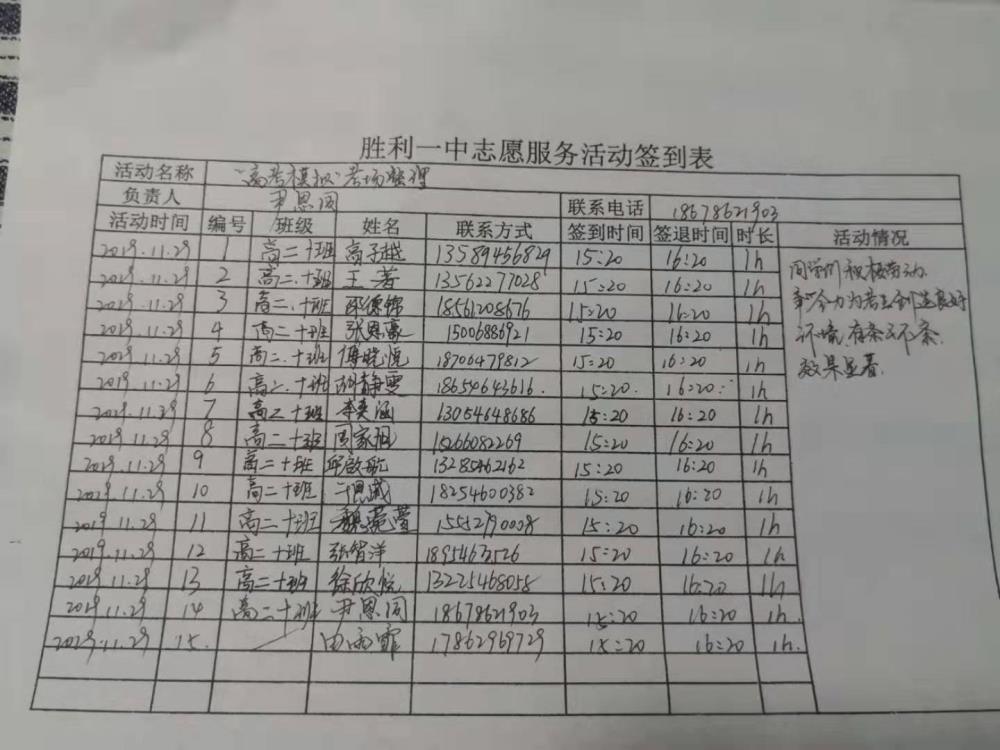 胜利一中志愿服务活动签到表
活动名称 "高考模拟"考场整理
负责人 尹恩同 联系电话 18678621903
活动时间 编号 班级 姓名 联系方式 签到时间 签退时间 时长 活动情况
2019.11.29 1 高二十班 高子越 13589456829 15:20 16:20 1h 同学们积极劳动
2019.11.29 2 高二.十班 王若 13562277028 15:20 16:20 1h 全力为考生创造良好
2019.11.29 3 高二.十班 邵德锦 18561208676 15:20 16:20 1h 环境,有条不紊.
2019.11.29 4 高二十班 张恩豪 15006886921 15:20 16:20 1h 效果显著.
2019.11.29 5 高二.十班 傅晓悦 18706479812 15:20 16:20 1h
2019.11.29 6 高二.十班 胡静雯 18654643616. 15:20. 16:20: 1h
2019.11.29 7 高二十班 李奕涵 13054648686 15:20 16:20 1h
2019.11.29 8 高二十班 15266082269 15:20 16:20 1h
2019.11.29 9 高二十班 邱啟航 13285462162 15:20 16:20 1h
2019.11.29 10 高二十班 18254600382 15:20 16:20 1h
2019.11.29 11 高二十班 15:20 16:20 1h
2019.11.29 12 高二十班 张智洋 15:20 16:20 1h
2019.11.29 13 高二十班 徐欣悦 13225468058 15:20 16:20 1h
2019.11.29 14 高二十班 尹恩同 18678621903 15:20 16:20 1h.
2019.11.29 15. 田雨霏 17862969729 15:20 16:20 1h.